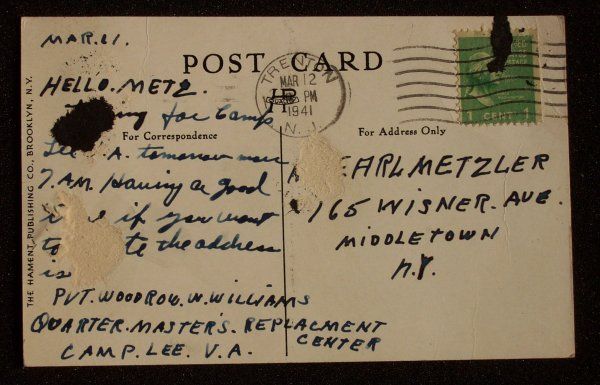 MAR. 11.
POST CARD
TRENTON
MAR 12
PM
1941
N.J.
1 CENT 1
HELLO. METZ.
for Camp
For Correspondence
For Address Only
tomorrow
7. A.M. Having a good
if you want
to the address
is
PVT. WOODROW. W. WILLIAMS
QUARTER. MASTER'S. REPLACMENT
CENTER
CAMP. LEE. V.A.
EARL METZLER
165 WISNER. AVE.
MIDDLETOWN
N.Y.
THE HAMENT PUBLISHING CO., BROOKLYN, N.Y.